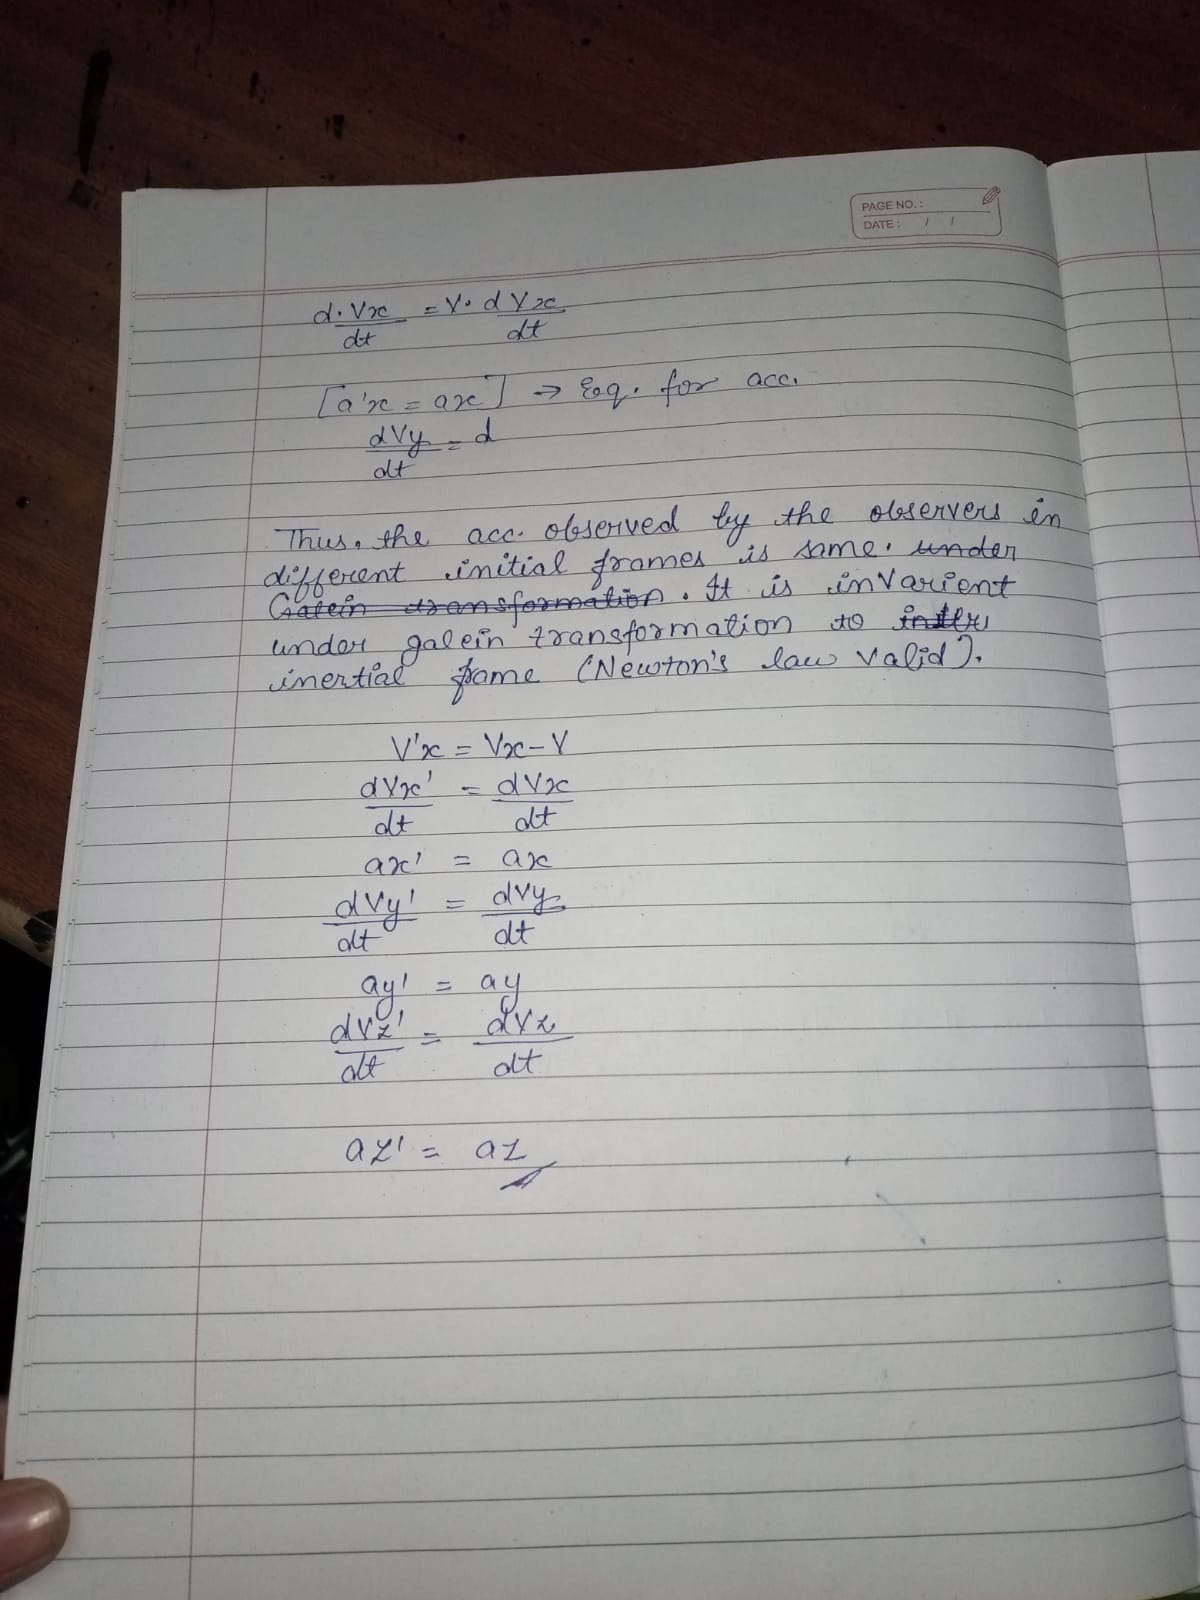 PAGE NO.:
DATE: / /
d. Vx = V. d Vx
dt dt
[a'x = ax] → Eq. for acc.
dVy = d
dt
Thus, the acc. observed by the observers in
different initial frames is same. under
Galein transformation. It is invarient
under galein transformation to
inertial frame (Newton's law valid).
V'x = Vx - V
dVx' = dVx
dt dt
ax' = ax
dVy' = dVy
dt dt
ay' = ay
dVz' = dVz
dt dt
az' = az